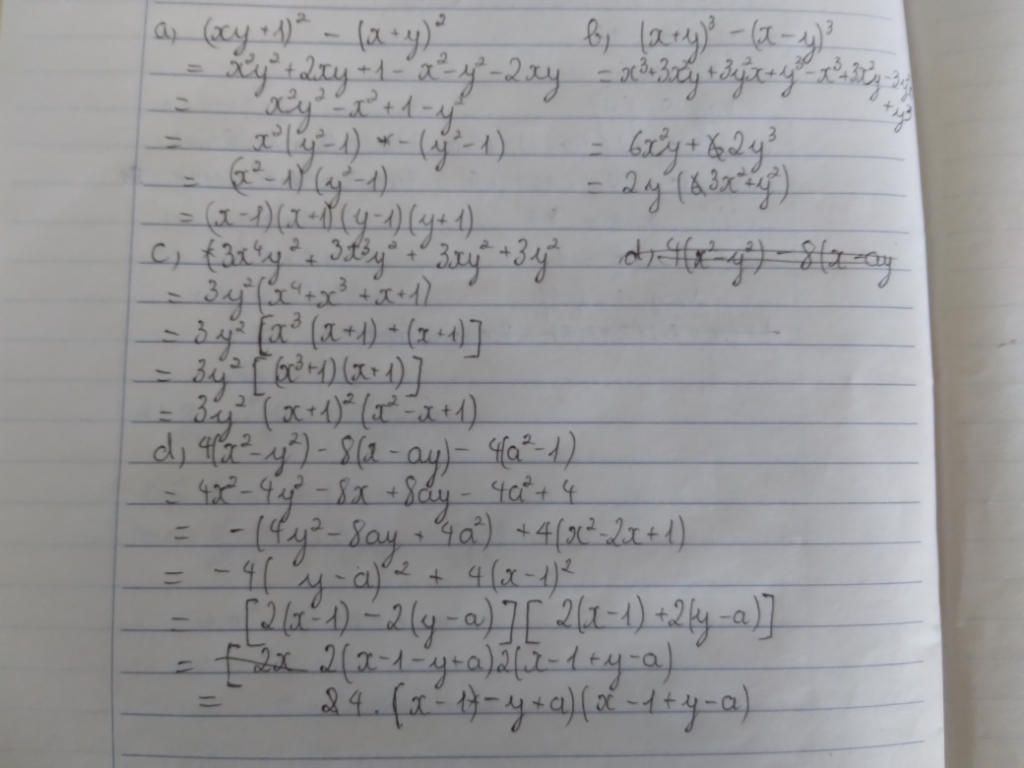 a, (xy+1)² - (x+y)²
= x²y²+2xy+1-x²-y²-2xy
= x²y²-x²+1-y²
= x²(y²-1) - (y²-1)
= (x²-1)(y²-1)
= (x-1)(x+1)(y-1)(y+1)
b, (x+y)³ - (x-y)³
= x³+3x²y+3y²x+y³-x³+3x²y-3y²x
+y³
= 6x²y+2y³
= 2y(3x²+y²)
c, 3x⁴y² + 3x³y² + 3xy² + 3y²
= 3y²(x⁴+x³+x+1)
= 3y²[x³(x+1)+(x+1)]
= 3y²[(x³+1)(x+1)]
= 3y²(x+1)²(x²-x+1)
d, 4(x²-y²) - 8(x-ay
d, 4(x²-y²)-8(x-ay)-4(a²-1)
= 4x²-4y²-8x+8ay-4a²+4
= -(4y²-8ay+4a²)+4(x²-2x+1)
= -4(y-a)²+4(x-1)²
= [2(x-1)-2(y-a)][2(x-1)+2(y-a)]
= [2x 2(x-1-y+a)2(x-1+y-a)
= 24.(x-1-y+a)(x-1+y-a)